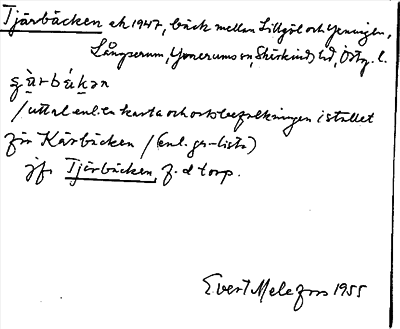 Tjärbäcken ek 1947, bäck mellan Lillgöl och Yxningen,
Långserum, Yxnerums sn, Skärkinds hd, Östg. l.
/uttal enl. en karta och ortsbefolkningen i stället
för Kärbäcken / (enl. gr-lista)
jfr Tjärbäcken, f. d. torp.
Evert Melefors 1955